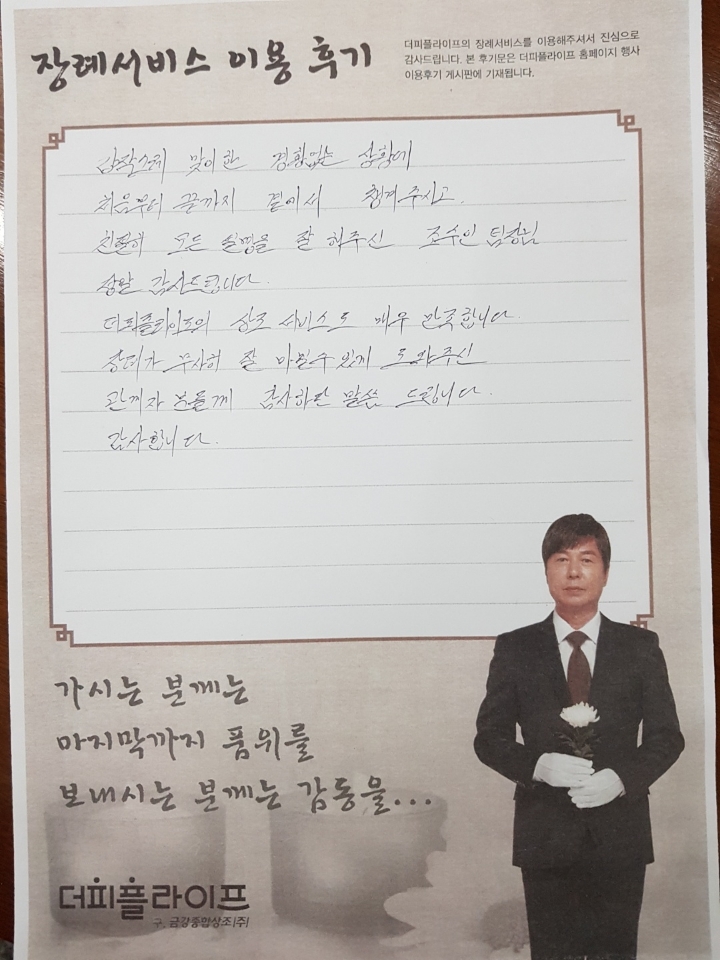 장례서비스 이용 후기
더피플라이프의 장례서비스를 이용해주셔서 진심으로
감사드립니다. 본 후기문은 더피플라이프 홈페이지 행사
이용후기 게시판에 기재됩니다.
갑작스레 맞이한 경황없는 상황에
처음부터 끝까지 곁에서 챙겨주시고.
친절히 모든 설명을 잘 해주신 조수인 팀장님
정말 감사드립니다.
더피플라이프의 상조 서비스도 매우 만족합니다.
장례가 무사히 잘 마칠수 있게 도와주신
관계자 분들께 감사하단 말씀 드립니다.
감사합니다.
가시는 분께는
마지막까지 품위를
보내시는 분께는 감동을...
더피플라이프
구. 금강종합상조(주)